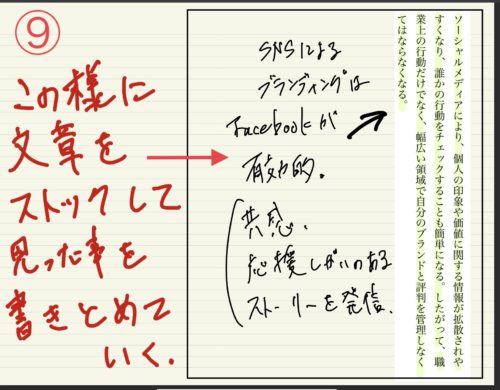 ⑨
この様に
文章を
ストックして
思った事を
書きとめて
いく.
SNSによる
ブランディングは
Facebookが
有効的.
共感.
応援しがいのある
ストーリーを発信.
ソーシャルメディアにより、個人の印象や価値に関する情報が拡散されや
すくなり、誰かの行動をチェックすることも簡単になる。したがって、職
業上の行動だけでなく、幅広い領域で自分のブランドと評判を管理しなく
てはならなくなる。